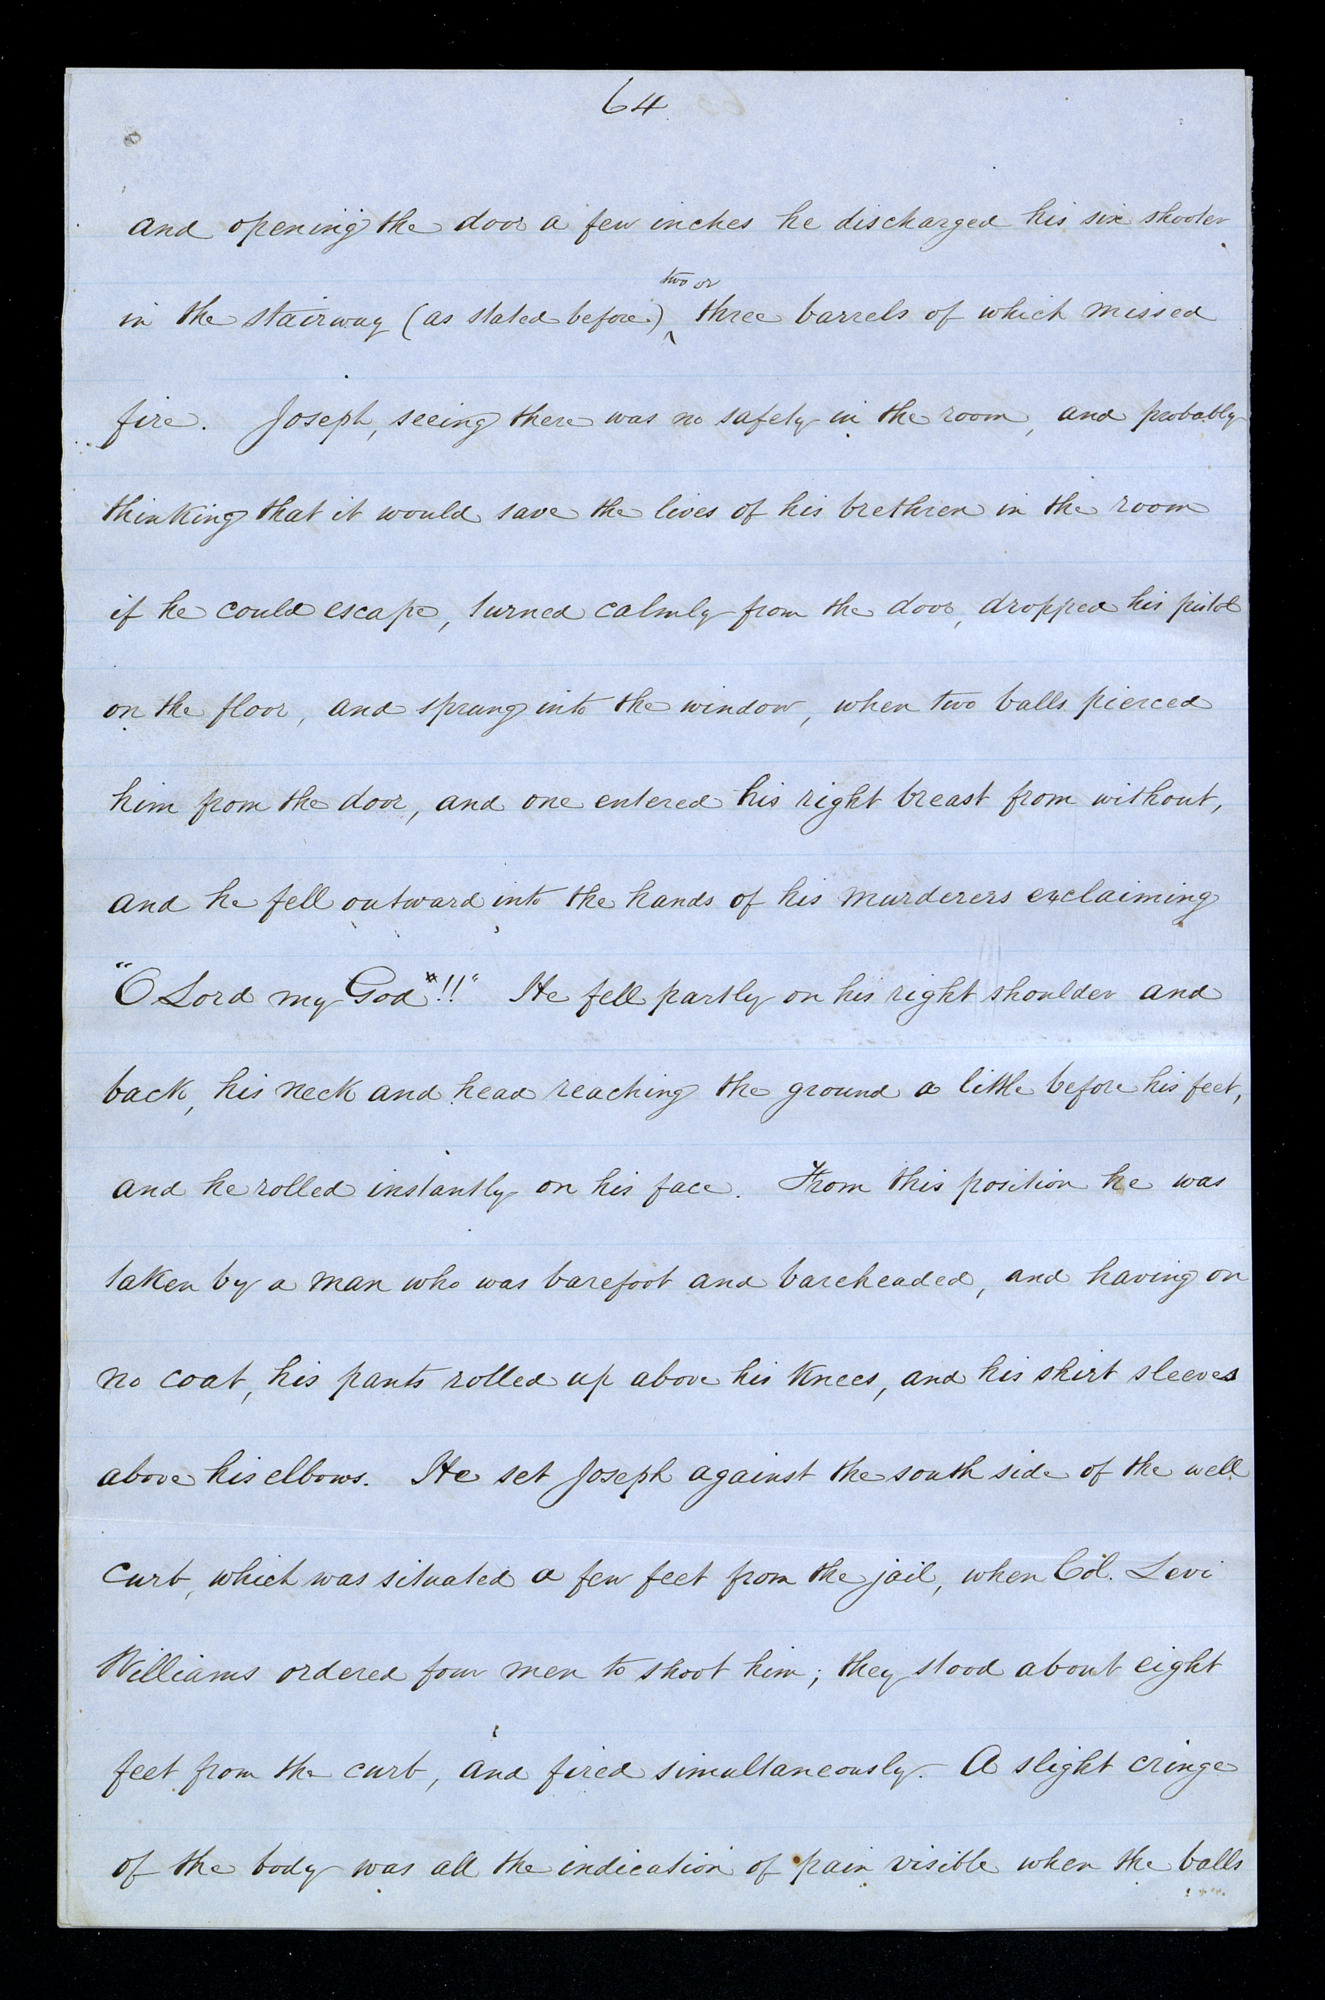 64
and opening the door a few inches he discharged his six shooter
in the stairway (as stated before.) two or three barrels of which missed
fire. Joseph, seeing there was no safety in the room, and probably
thinking that it would save the lives of his brethren in the room
if he could escape, turned calmly from the door, dropped his pistol
on the floor, and sprung into the window, when two balls pierced
him from the door, and one entered his right breast from without,
and he fell outward into the hands of his murderers exclaiming
"O Lord my God"!!" He fell partly on his right shoulder and
back, his neck and head reaching the ground a little before his feet,
and he rolled instantly on his face. From this position he was
taken by a man who was barefoot and bareheaded, and having on
no coat, his pants rolled up above his knees, and his shirt sleeves
above his elbows. He set Joseph against the south side of the well
curb, which was situated a few feet from the jail, when Col. Levi
Williams ordered four men to shoot him; they stood about eight
feet from the curb, and fired simultaneously. A slight cringe
of the body was all the indication of pain visible when the balls